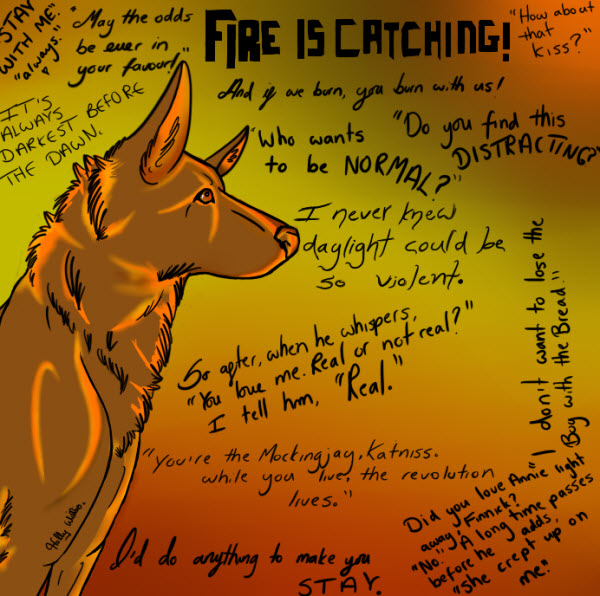 STAY
WITH ME"
"always."
"May the odds
be ever in
your favour!"
FIRE IS CATCHING!
And if we burn, you burn with us!
"How about
that
kiss?"
IT'S
ALWAYS
DARKEST BEFORE
THE DAWN.
"Who wants
to be NORMAL?"
"Do you find this
DISTRACTING?"
I never knew
daylight could be
so violent.
So after, when he whispers,
"You love me. Real or not real?"
I tell him, "Real."
"I don't want to lose the
Boy with the Bread."
"You're the Mockingjay, Katniss.
While you live, the revolution
lives."
Did you love Annie right
away, Finnick?
"No." A long time passes
before he adds,
"She crept up on
me."
I'd do anything to make you
STAY.
Holly Willis.